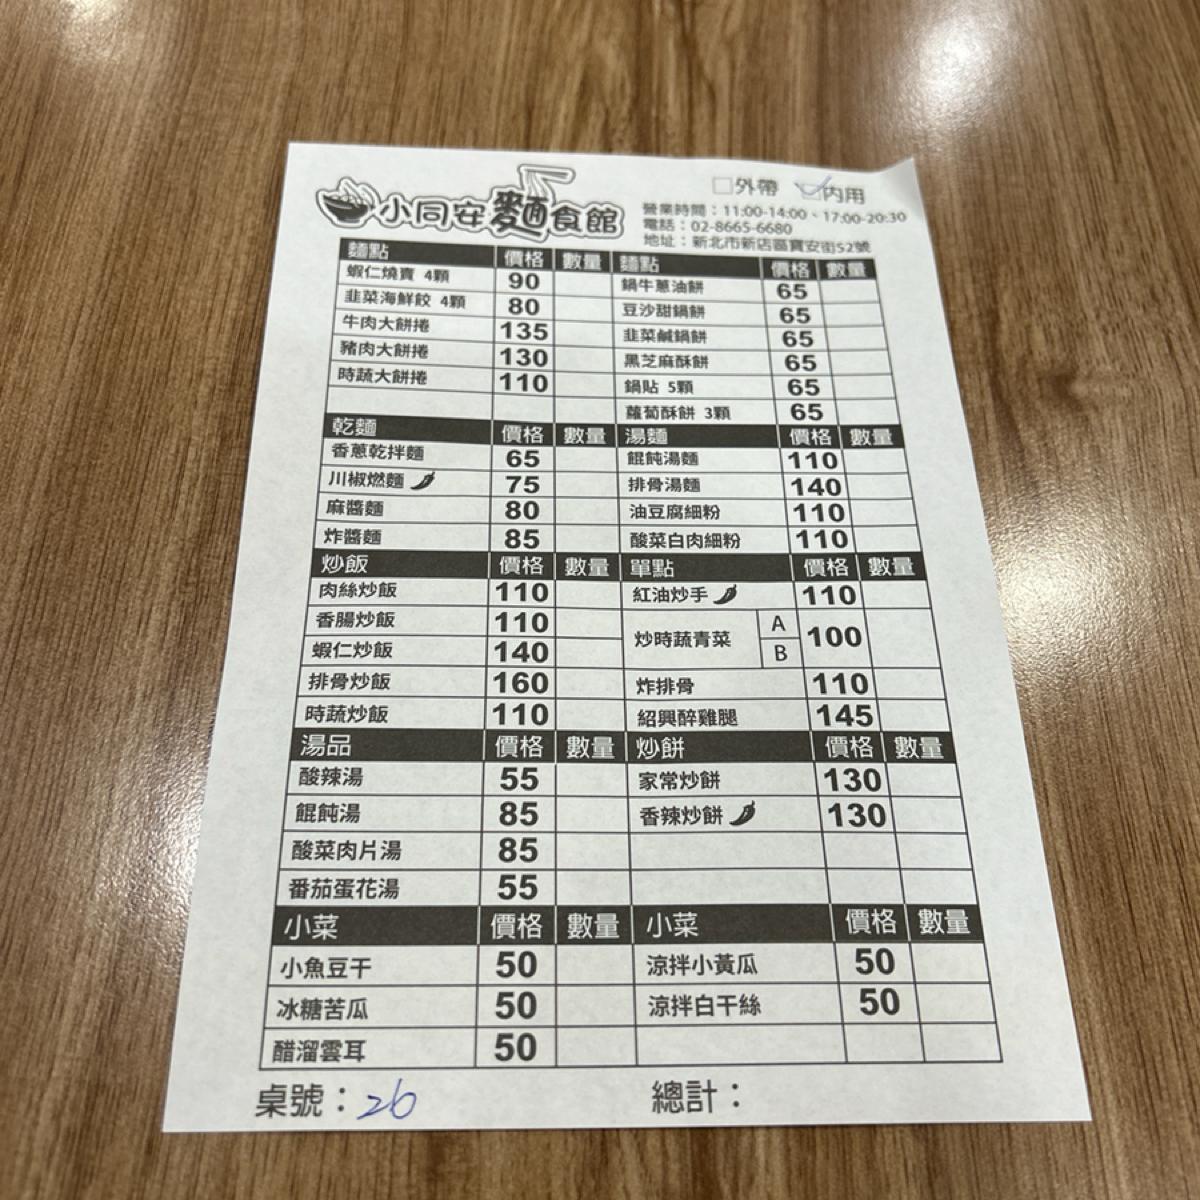 小同安麵食館
□外帶 ☑內用
營業時間：11:00-14:00、17:00-20:30
電話：02-8665-6680
地址：新北市新店區寶安街52號
麵點 價格 數量 麵點 價格 數量
蝦仁燒賣 4顆 90 鍋牛蔥油餅 65
韭菜海鮮餃 4顆 80 豆沙甜鍋餅 65
牛肉大餅捲 135 韭菜鹹鍋餅 65
豬肉大餅捲 130 黑芝麻酥餅 65
時蔬大餅捲 110 鍋貼 5顆 65
蘿蔔酥餅 3顆 65
乾麵 價格 數量 湯麵 價格 數量
香蔥乾拌麵 65 餛飩湯麵 110
川椒燃麵 75 排骨湯麵 140
麻醬麵 80 油豆腐細粉 110
炸醬麵 85 酸菜白肉細粉 110
炒飯 價格 數量 單點 價格 數量
肉絲炒飯 110 紅油炒手 110
香腸炒飯 110 炒時蔬青菜 A 100
蝦仁炒飯 140 B
排骨炒飯 160 炸排骨 110
時蔬炒飯 110 紹興醉雞腿 145
湯品 價格 數量 炒餅 價格 數量
酸辣湯 55 家常炒餅 130
餛飩湯 85 香辣炒餅 130
酸菜肉片湯 85
番茄蛋花湯 55
小菜 價格 數量 小菜 價格 數量
小魚豆干 50 涼拌小黃瓜 50
冰糖苦瓜 50 涼拌白干絲 50
醋溜雲耳 50
桌號：26 總計：